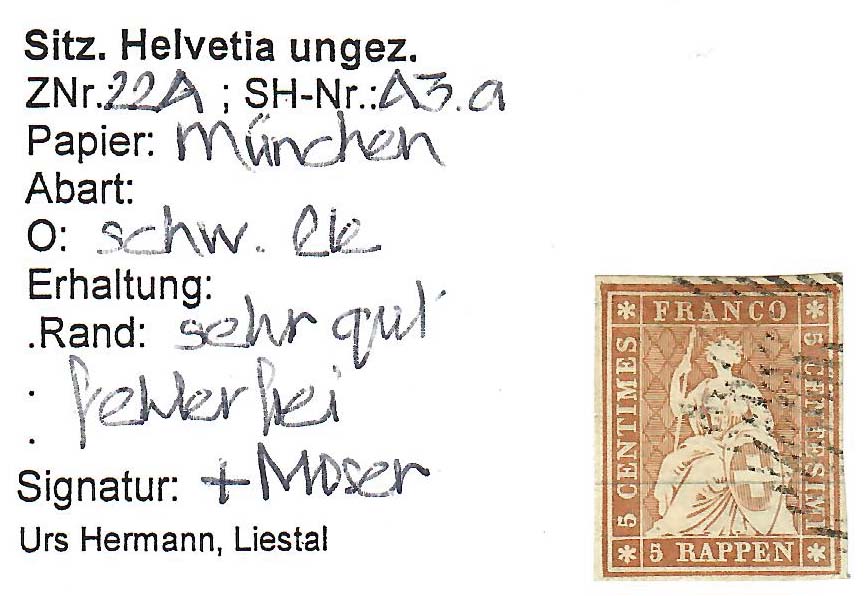 Sitz. Helvetia ungez.
ZNr.:22A ; SH-Nr.:A3.a
Papier: München
Abart:
O: schw. ek
Erhaltung:
.Rand: sehr gut
: fehlerfrei
.
Signatur: + Moser
Urs Hermann, Liestal
FRANCO
5 CENTIMES
5 CENTESIMI
5 RAPPEN